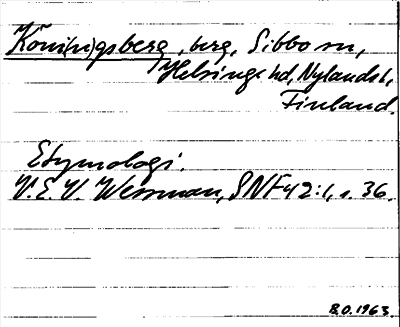 Köni(n)gsberg, berg, Sibbo sn,
Helsinge hd, Nylands l,
Finland.
Etymologi.
V.E.V. Wessman, SNF 42:1, s. 36.
B.O. 1963.